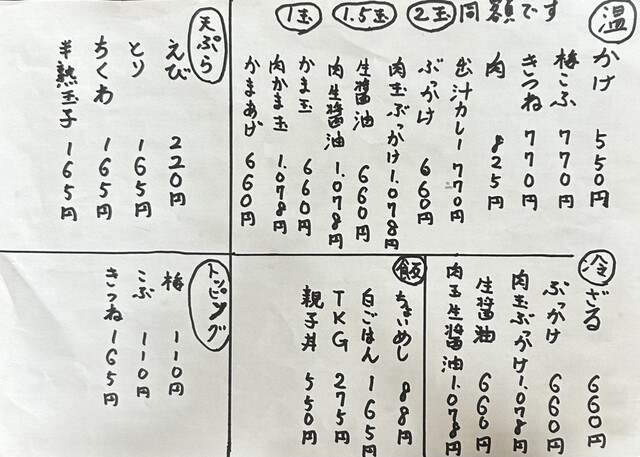 1玉 1.5玉 2玉 同額です
温
かけ 550円
梅こぶ 770円
きつね 770円
肉 825円
出汁カレー 770円
ぶっかけ 660円
肉玉ぶっかけ 1.078円
生醤油 660円
肉生醤油 1.078円
かま玉 660円
肉かま玉 1.078円
かまあげ 660円
天ぷら
えび 220円
とり 165円
ちくわ 165円
半熟玉子 165円
冷
ざる 660円
ぶっかけ 660円
肉玉ぶっかけ 1.078円
生醤油 660円
肉玉生醤油 1.078円
飯
ちょいめし 88円
白ごはん 165円
TKG 275円
親子丼 550円
トッピング
梅 110円
こぶ 110円
きつね 165円